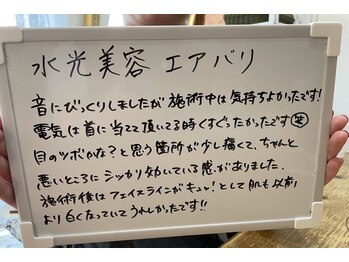 水光美容 エアバリ
音にびっくりしましたが施術中は気持ちよかったです!
電気は首に当てて頂いてる時くすぐったかったです㊗
目のツボかな?と思う箇所が少し痛くて、ちゃんと
悪いところにシッカリ効いている感がありました。
施術後はフェイスラインがキュッ!として肌も以前
より白くなっていてうれしかったです!!